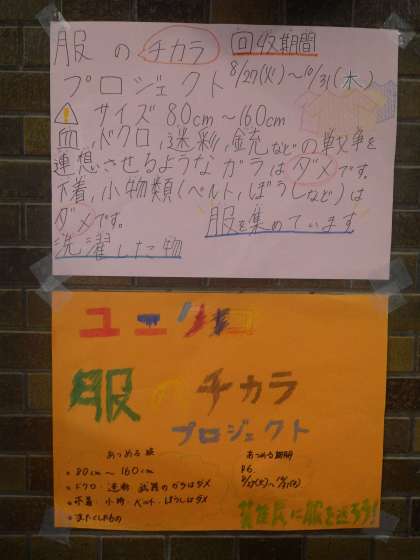 服のチカラ 回収期間
プロジェクト 8/27(火)～10/31(木)
サイズ 80cm～160cm
血,ドクロ,迷彩,銃などの戦争を
連想させるようなガラはダメです。
下着,小物類(ベルト,ぼうしなど)は
ダメです。 服を集めています
洗濯した物
ユニクロ
服のチカラ
プロジェクト
あつめる服 あつめる期間
・80cm～160cm R6
・ドクロ・迷彩・武器のガラはダメ 8/27(火)～10/31(木)
・下着・小物・ベルト・ぼうしはダメ
・せんたくしたもの
難民に服を送ろう!